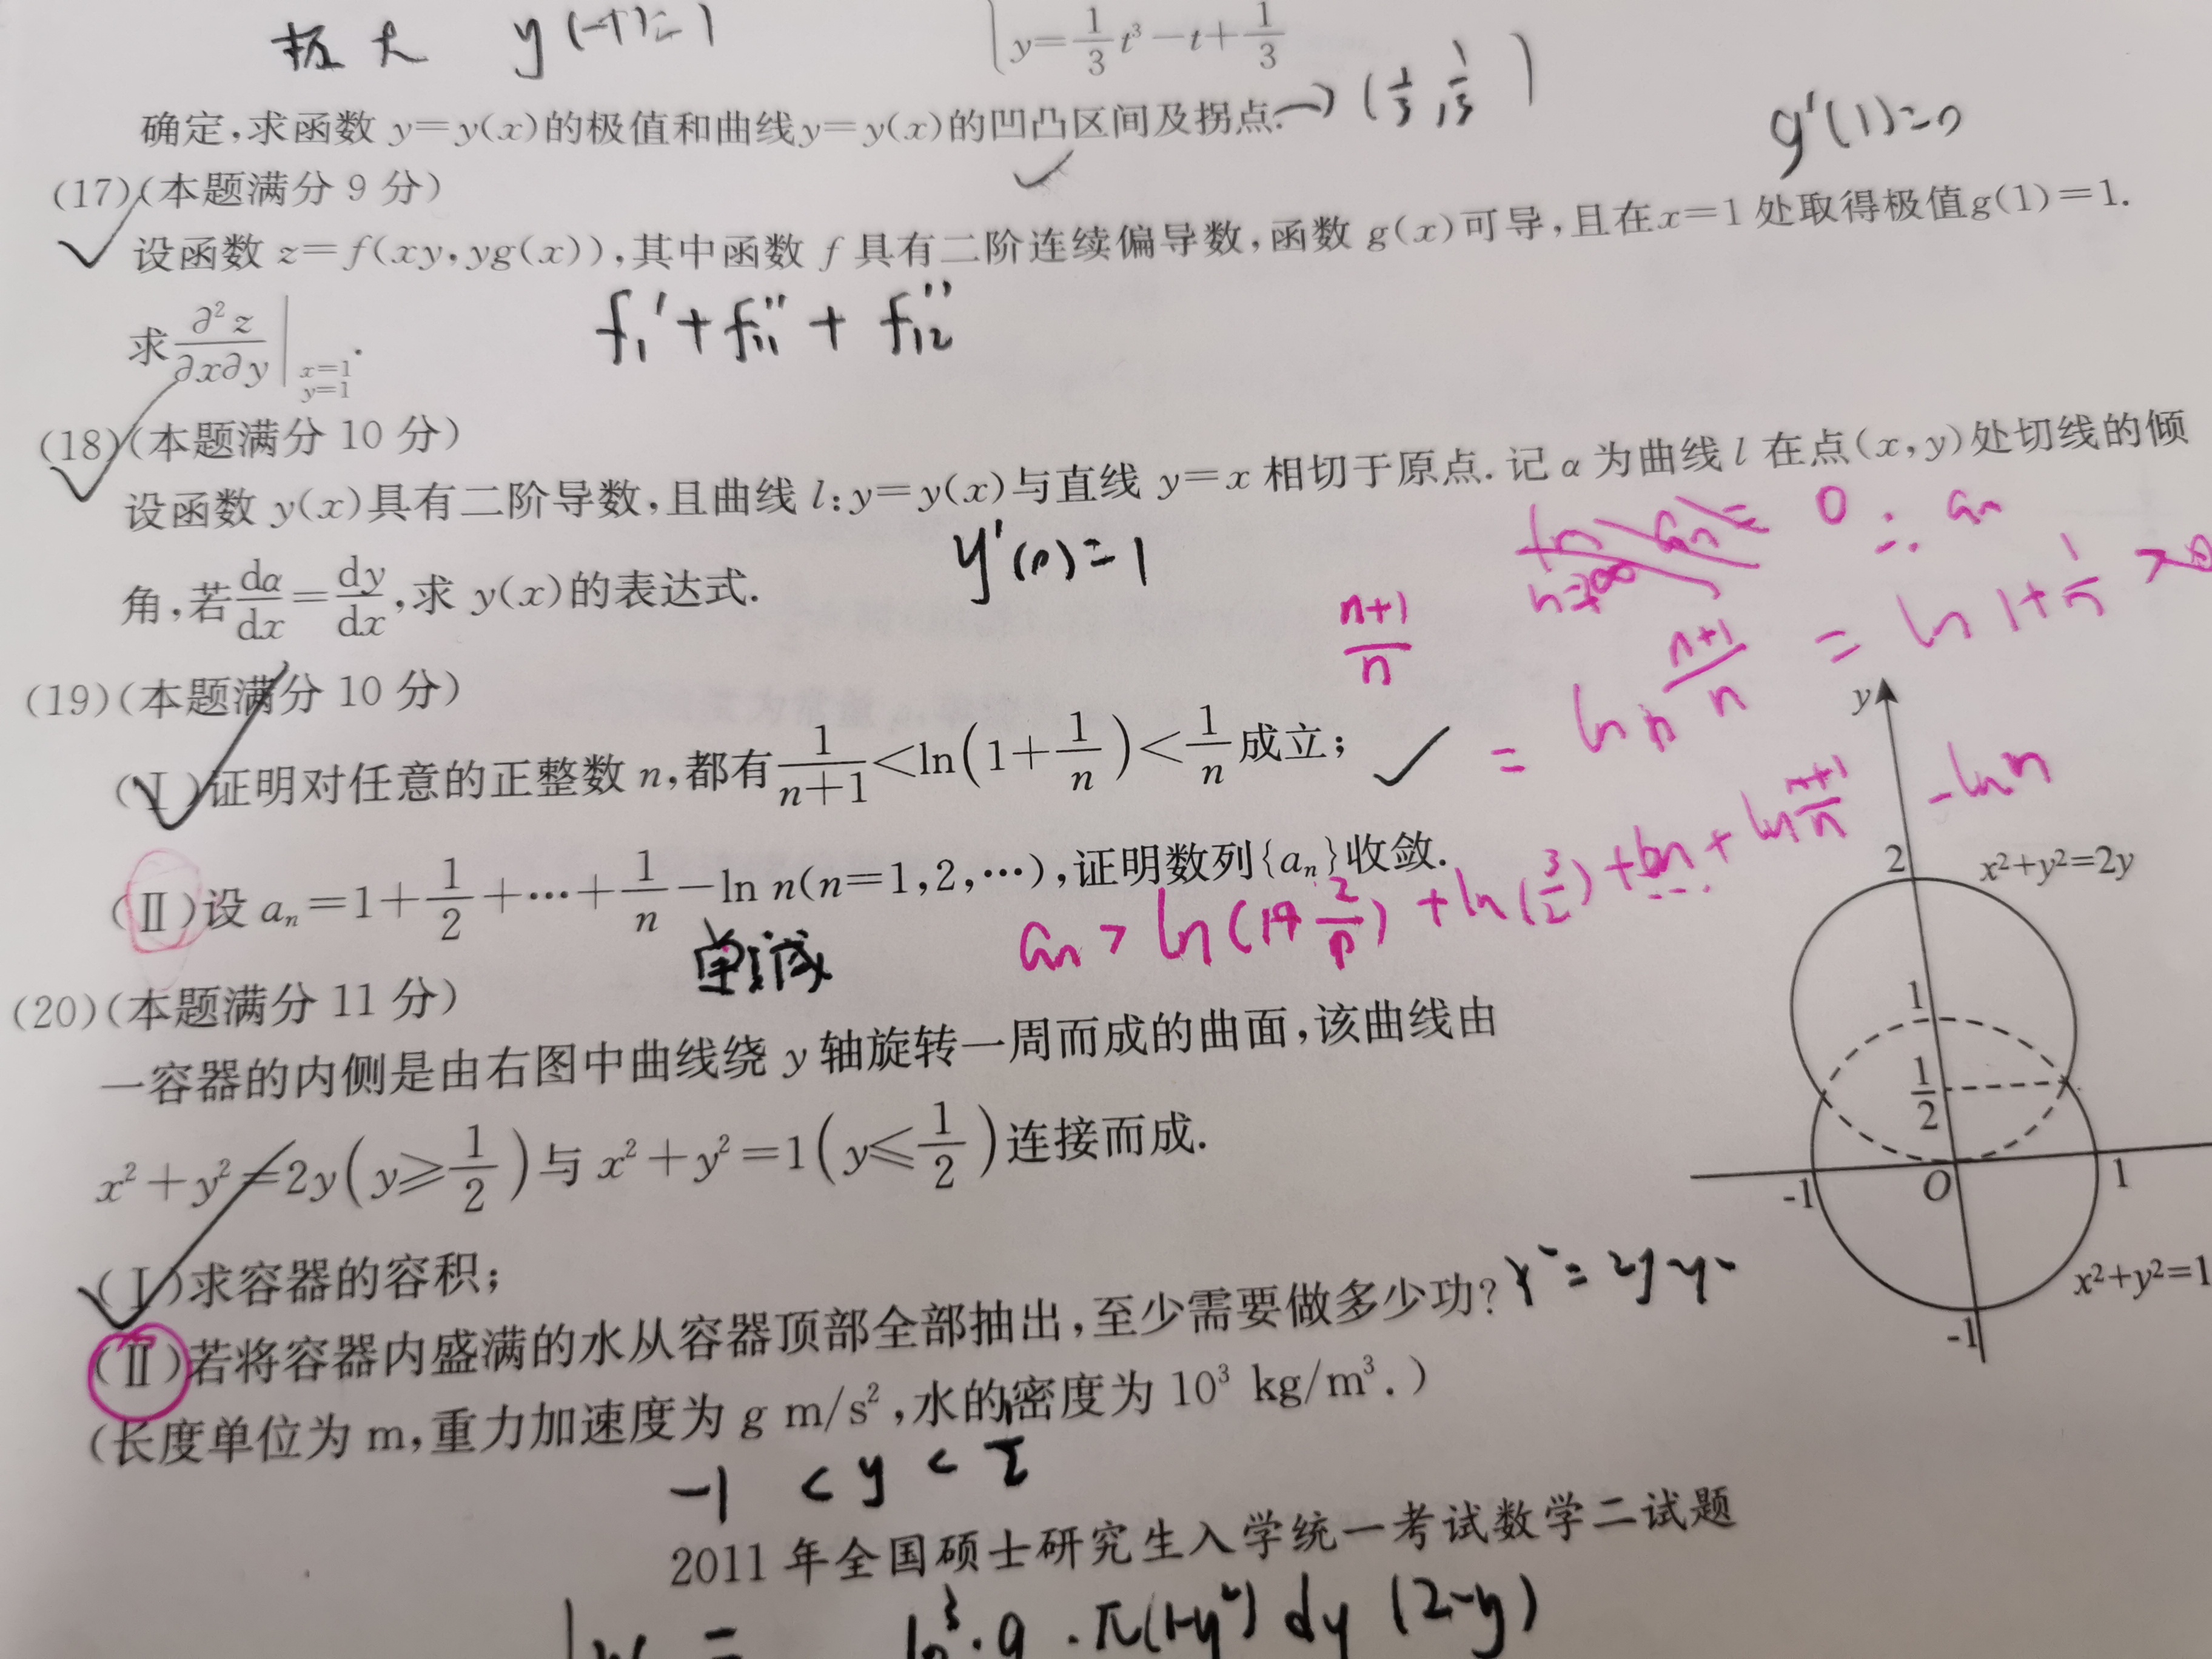 极大 y(-1)=1
y=1/3 t³-t+1/3
→(1/3,1/3)
确定,求函数 y=y(x)的极值和曲线y=y(x)的凹凸区间及拐点.
g'(1)=0
(17)(本题满分 9 分)
设函数 z=f(xy,yg(x)),其中函数 f 具有二阶连续偏导数,函数 g(x)可导,且在x=1 处取得极值g(1)=1.
求∂²z/∂x∂y|x=1 y=1.
f₁'+f₁₁''+f₁₂''
(18)(本题满分 10 分)
设函数 y(x)具有二阶导数,且曲线 l:y=y(x)与直线 y=x 相切于原点.记 α 为曲线 l 在点(x,y)处切线的倾
角,若dα/dx=dy/dx,求 y(x)的表达式.
y'(0)=1
n+1/n
= ln n+1/n = ln 1+1/n >0
(19)(本题满分 10 分)
(Ⅰ)证明对任意的正整数 n,都有1/(n+1)<ln(1+1/n)<1/n成立;
(Ⅱ)设 aₙ=1+1/2+⋯+1/n-ln n(n=1,2,⋯),证明数列{aₙ}收敛.
单减
(20)(本题满分 11 分)
一容器的内侧是由右图中曲线绕 y 轴旋转一周而成的曲面,该曲线由
x²+y²=2y(y≥1/2)与 x²+y²=1(y≤1/2)连接而成.
(Ⅰ)求容器的容积;
(Ⅱ)若将容器内盛满的水从容器顶部全部抽出,至少需要做多少功?
(长度单位为 m,重力加速度为 g m/s²,水的密度为 10³ kg/m³.)
y
2
x²+y²=2y
1
1/2
-1
O
1
x²+y²=1
-1
x²=2y-y²
-1<y<1/2
2011 年全国硕士研究生入学统一考试数学二试题
10³·g·π(1-y²)dy(2-y)